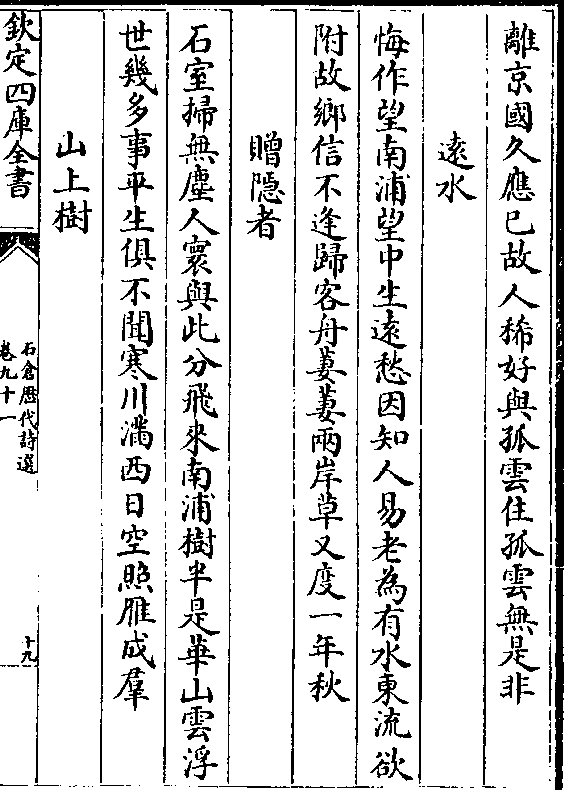 離京國久應已故人稀好與孤雲住孤雲無是非
逺水
悔作望南浦望中生逺愁因知人易老為有水東流欲
附故鄉信不逢歸客舟萋萋兩岸草又度一年秋
贈隠者
石室掃無塵人寰與此分飛來南浦樹半是華山雲浮
世幾多事平生俱不聞寒川滿西日空照雁成羣
山上樹
欽定四庫全書
石倉歴代詩選
卷九十一
十九